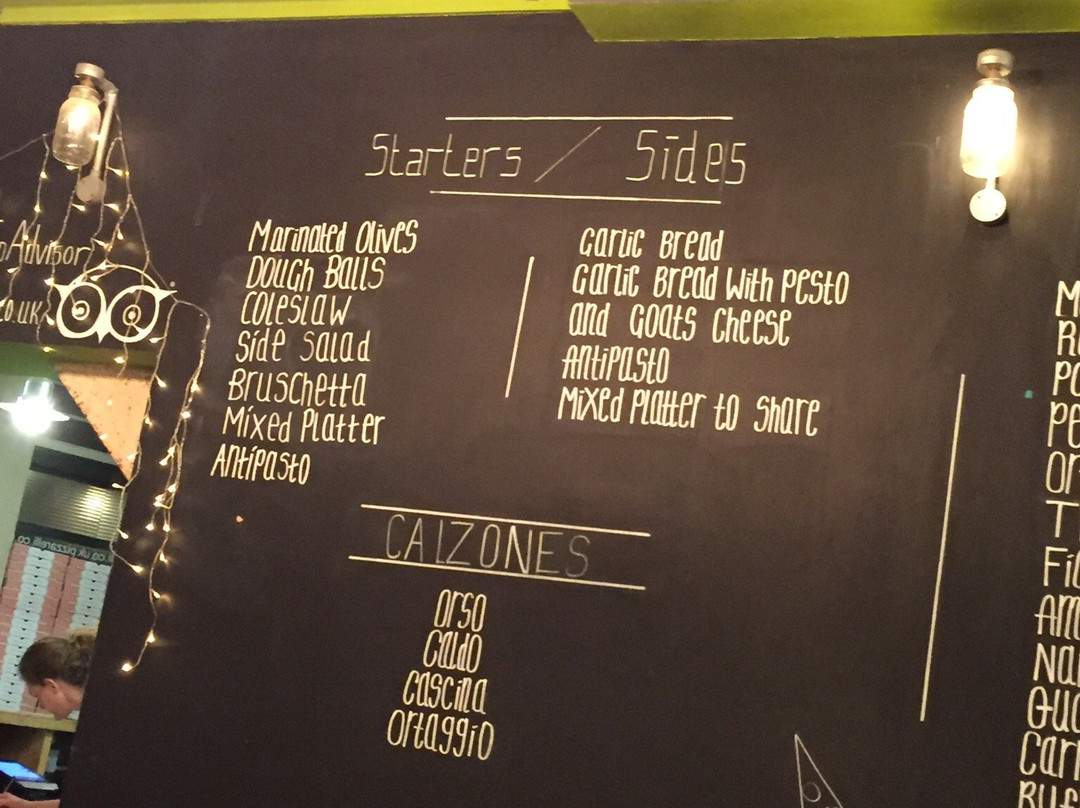 Starters / Sides
Marinated Olives
Dough Balls
Coleslaw
Side Salad
Bruschetta
Mixed Platter
Antipasto
Garlic Bread
Garlic Bread With Pesto
and Goats Cheese
Antipasto
Mixed Platter to Share
CALZONES
Orso
Caldo
Cascina
Ortaggio
Advisor
co.uk